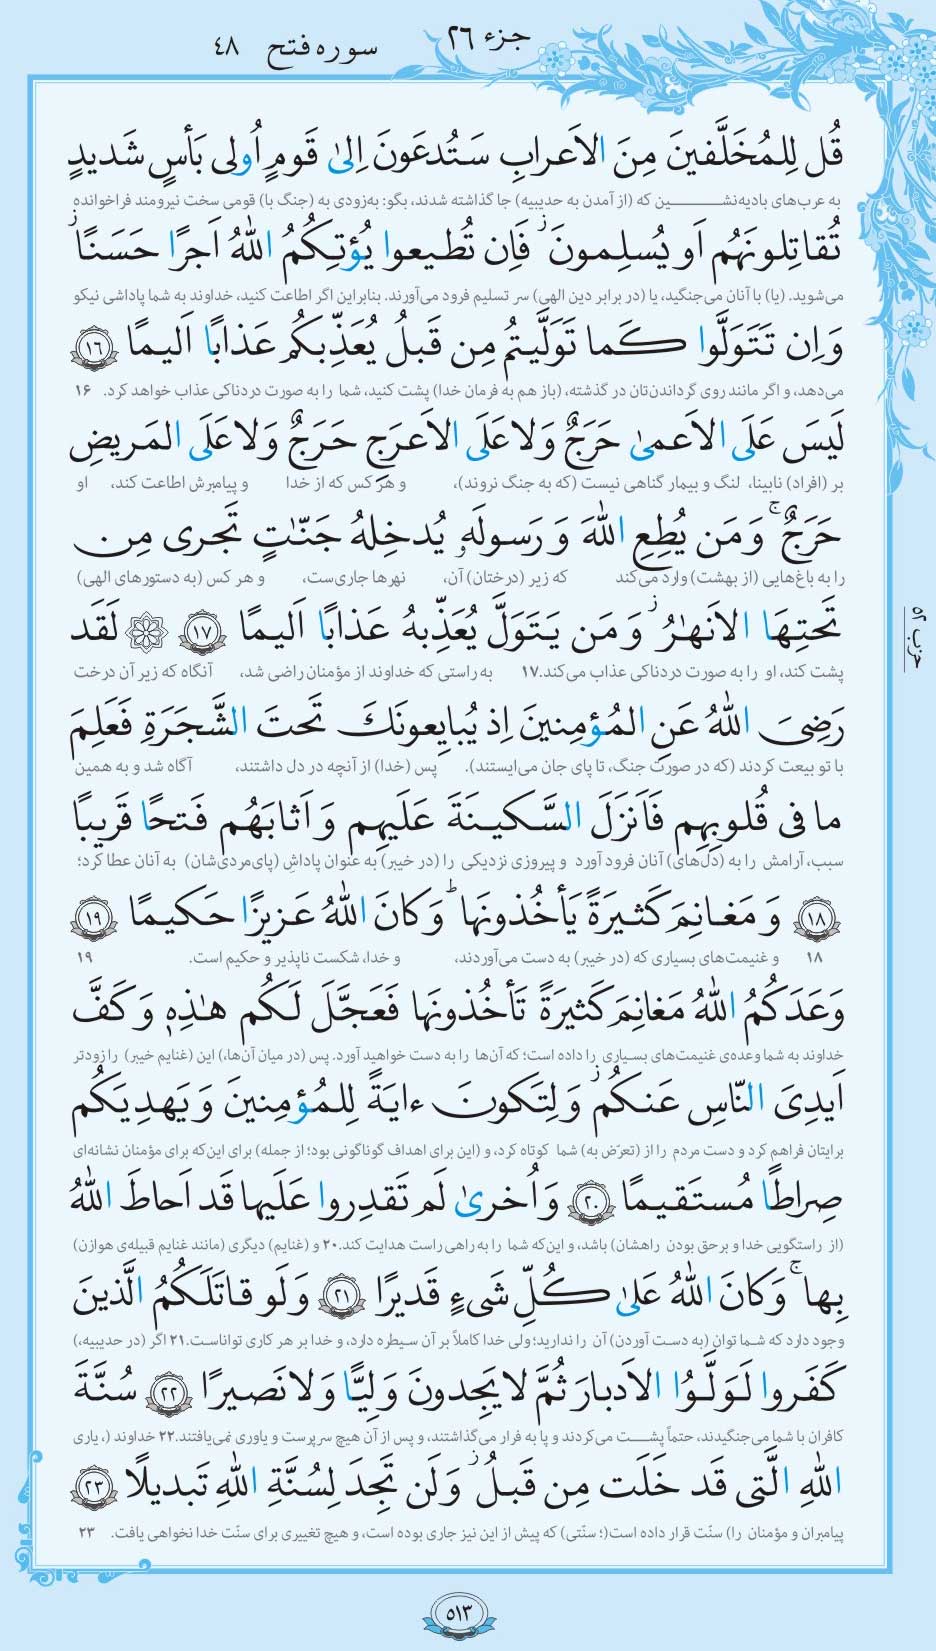 جزء ٢٦
سوره فتح ٤٨
قُل لِلمُخَلَّفينَ مِنَ الاَعرابِ سَتُدعَونَ اِلىٰ قَومٍ اُولى بَأسٍ شَديدٍ
به عرب‌های بادیه‌نشین که (از آمدن به حدیبیه) جا گذاشته شدند، بگو: به‌زودی به (جنگ با) قومی سخت نیرومند فراخوانده
تُقاتِلونَهُم اَو يُسلِمونَ ۖ فَاِن تُطيعوا يُؤتِكُمُ اللهُ اَجرًا حَسَنًا ۖ
می‌شوید. (یا) با آنان می‌جنگید، یا (در برابر دین الهی) سر تسلیم فرود می‌آورند. بنابراین اگر اطاعت کنید، خداوند به شما پاداشی نیکو
وَاِن تَتَوَلَّوا كَما تَوَلَّيتُم مِن قَبلُ يُعَذِّبكُم عَذابًا اَليمًا ١٦
می‌دهد، و اگر مانند روی گرداندن‌تان در گذشته، (باز هم به فرمان خدا) پشت کنید، شما را به صورت دردناکی عذاب خواهد کرد. ۱۶
لَيسَ عَلَى الاَعمىٰ حَرَجٌ وَلا عَلَى الاَعرَجِ حَرَجٌ وَلا عَلَى المَريضِ
بر (افراد) نابینا، لنگ و بیمار گناهی نیست (که به جنگ نروند)، و هر کس که از خدا و پیامبرش اطاعت کند، او
حَرَجٌ ۚ وَمَن يُطِعِ اللهَ وَرَسولَهٗ يُدخِلهُ جَنّاتٍ تَجرى مِن
را به باغ‌هایی (از بهشت) وارد می‌کند که زیر (درختان) آن، نهرها جاری‌ست، و هر کس (به دستورهای الهی)
تَحتِهَا الاَنهٰرُ ۖ وَمَن يَتَوَلَّ يُعَذِّبهُ عَذابًا اَليمًا ١٧ لَقَد
پشت کند، او را به صورت دردناکی عذاب می‌کند. ۱۷ به راستی که خداوند از مؤمنان راضی شد، آنگاه که زیر آن درخت
رَضِىَ اللهُ عَنِ المُؤمِنينَ اِذ يُبايِعونَكَ تَحتَ الشَّجَرَةِ فَعَلِمَ
با تو بیعت کردند (که در صورت جنگ، تا پای جان می‌ایستند). پس (خدا) از آنچه در دل داشتند، آگاه شد و به همین
ما فى قُلوبِهِم فَاَنزَلَ السَّكينَةَ عَلَيهِم وَاَثابَهُم فَتحًا قَريبًا
سبب، آرامش را به (دل‌های) آنان فرود آورد و پیروزی نزدیکی را (در خیبر) به عنوان پاداش (پای‌مردی‌شان) به آنان عطا کرد؛
١٨ وَمَغانِمَ كَثيرَةً يَأخُذونَها ۗ وَكانَ اللهُ عَزيزًا حَكيمًا ١٩
۱۸ و غنیمت‌های بسیاری که (در خیبر) به دست می‌آوردند، و خدا، شکست ناپذیر و حکیم است. ۱۹
وَعَدَكُمُ اللهُ مَغانِمَ كَثيرَةً تَأخُذونَها فَعَجَّلَ لَكُم هٰذِهٖ وَكَفَّ
خداوند به شما وعده‌ی غنیمت‌های بسیاری را داده است؛ که آن‌ها را به دست خواهید آورد. پس (در میان آن‌ها،) این (غنایم خیبر) را زودتر
اَيدِىَ النّاسِ عَنكُم ۖ وَلِتَكونَ ءايَةً لِلمُؤمِنينَ وَيَهدِيَكُم
برایتان فراهم کرد و دست مردم را از (تعرّض به) شما کوتاه کرد، و (این برای اهداف گوناگونی بود؛ از جمله) برای این‌که برای مؤمنان نشانه‌ای
صِراطًا مُستَقيمًا ٢٠ وَاُخرىٰ لَم تَقدِروا عَلَيها قَد اَحاطَ اللهُ
(از راستگویی خدا و برحق بودن راهشان) باشد، و این‌که شما را به راهی راست هدایت کند. ۲۰ و (غنایم) دیگری (مانند غنایم قبیله‌ی هوازن)
بِها ۚ وَكانَ اللهُ عَلىٰ كُلِّ شَىءٍ قَديرًا ٢١ وَلَو قاتَلَكُمُ الَّذينَ
وجود دارد که شما توان (به دست آوردن) آن را ندارید؛ ولی خدا کاملاً بر آن سیطره دارد، و خدا بر هر کاری تواناست. ۲۱ اگر (در حدیبیه،)
كَفَروا لَوَلَّوُا الاَدبارَ ثُمَّ لا يَجِدونَ وَلِيًّا وَلا نَصيرًا ٢٢ سُنَّةَ
کافران با شما می‌جنگیدند، حتماً پشت می‌کردند و پا به فرار می‌گذاشتند، و پس از آن هیچ سرپرست و یاوری نمی‌یافتند. ۲۲ خداوند (، یاری
اللهِ الَّتى قَد خَلَت مِن قَبلُ ۖ وَلَن تَجِدَ لِسُنَّةِ اللهِ تَبديلًا ٢٣
پیامبران و مؤمنان را) سنّت قرار داده است (؛ سنّتی) که پیش از این نیز جاری بوده است، و هیچ تغییری برای سنّت خدا نخواهی یافت. ۲۳
حزب ٥٢
٥١٣